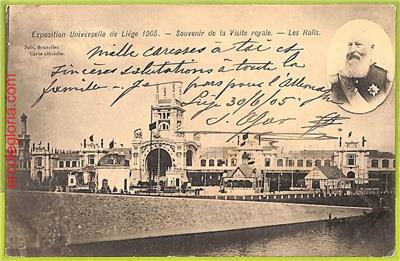 Exposition Universelle de Liége 1905. — Souvenir de la Visite royale. — Les Halls.
Nels, Bruxelles
Carte officielle.
mille caresses à toi et
sincères salutations à toute la
famille. Je pars pour l'Allemagne
Liég 30/6/05.
amoreloria.com